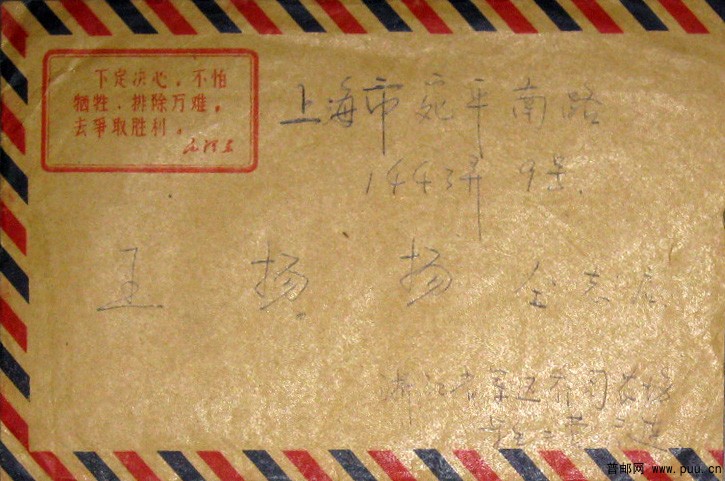 下定决心，不怕
牺牲，排除万难，
去争取胜利。
毛泽东
上海市宛平南路
1443弄 9号
王 扬 扬 同志启
浙江省军区乔司农场
普邮网 www.puu.cn